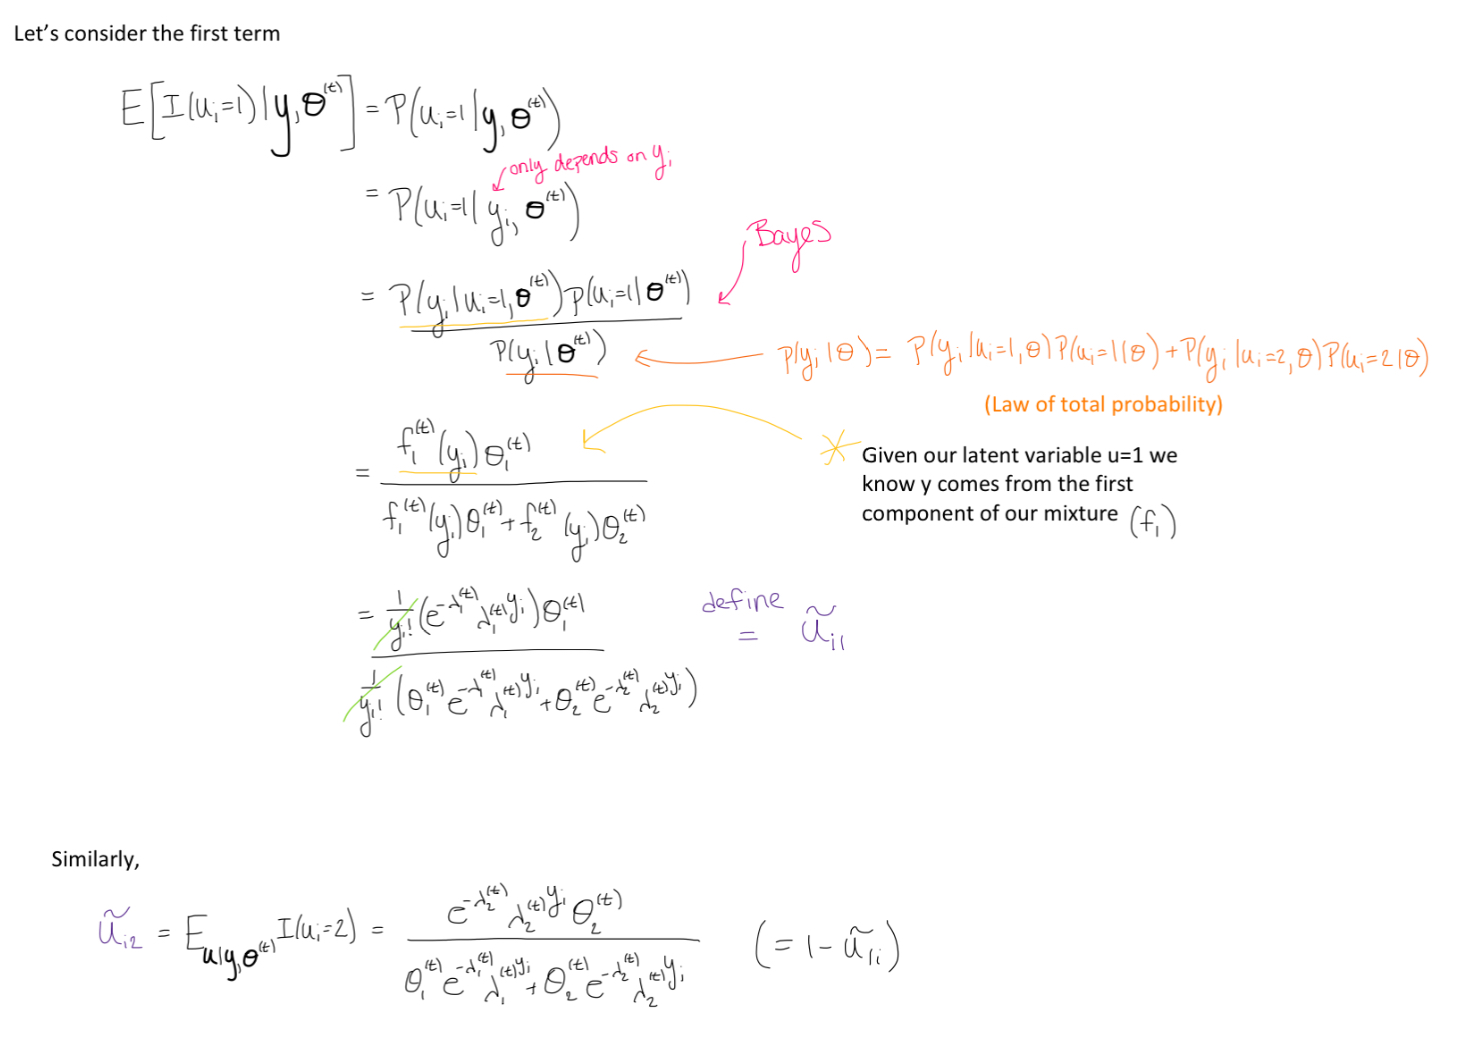 Let's consider the first term
E[I(uᵢ=1)|y,θ⁽ᵗ⁾] = P(uᵢ=1|y,θ⁽ᵗ⁾)
only depends on yᵢ
= P(uᵢ=1|yᵢ,θ⁽ᵗ⁾)
Bayes
= P(yᵢ|uᵢ=1,θ⁽ᵗ⁾)p(uᵢ=1|θ⁽ᵗ⁾)
P(yᵢ|θ⁽ᵗ⁾)
P(yᵢ|θ) = P(yᵢ|uᵢ=1,θ)P(uᵢ=1|θ) + P(yᵢ|uᵢ=2,θ)P(uᵢ=2|θ)
(Law of total probability)
= f₁⁽ᵗ⁾(yᵢ)θ₁⁽ᵗ⁾
f₁⁽ᵗ⁾(yᵢ)θ₁⁽ᵗ⁾ + f₂⁽ᵗ⁾(yᵢ)θ₂⁽ᵗ⁾
* Given our latent variable u=1 we
know y comes from the first
component of our mixture (f₁)
= 1/yᵢ! (e^{-λ₁⁽ᵗ⁾} λ₁^{(t)yᵢ})θ₁⁽ᵗ⁾
1/yᵢ! (θ₁⁽ᵗ⁾ e^{-λ₁⁽ᵗ⁾} λ₁^{(t)yᵢ} + θ₂⁽ᵗ⁾ e^{-λ₂⁽ᵗ⁾} λ₂^{(t)yᵢ})
define
= ũᵢ₁
Similarly,
ũᵢ₂ = E_{u|y,θ⁽ᵗ⁾} I(uᵢ=2) =
e^{-λ₂⁽ᵗ⁾} λ₂^{(t)yᵢ} θ₂⁽ᵗ⁾
θ₁⁽ᵗ⁾ e^{-λ₁⁽ᵗ⁾} λ₁^{(t)yᵢ} + θ₂⁽ᵗ⁾ e^{-λ₂⁽ᵗ⁾} λ₂^{(t)yᵢ}
(= 1 - ũ₁ᵢ)